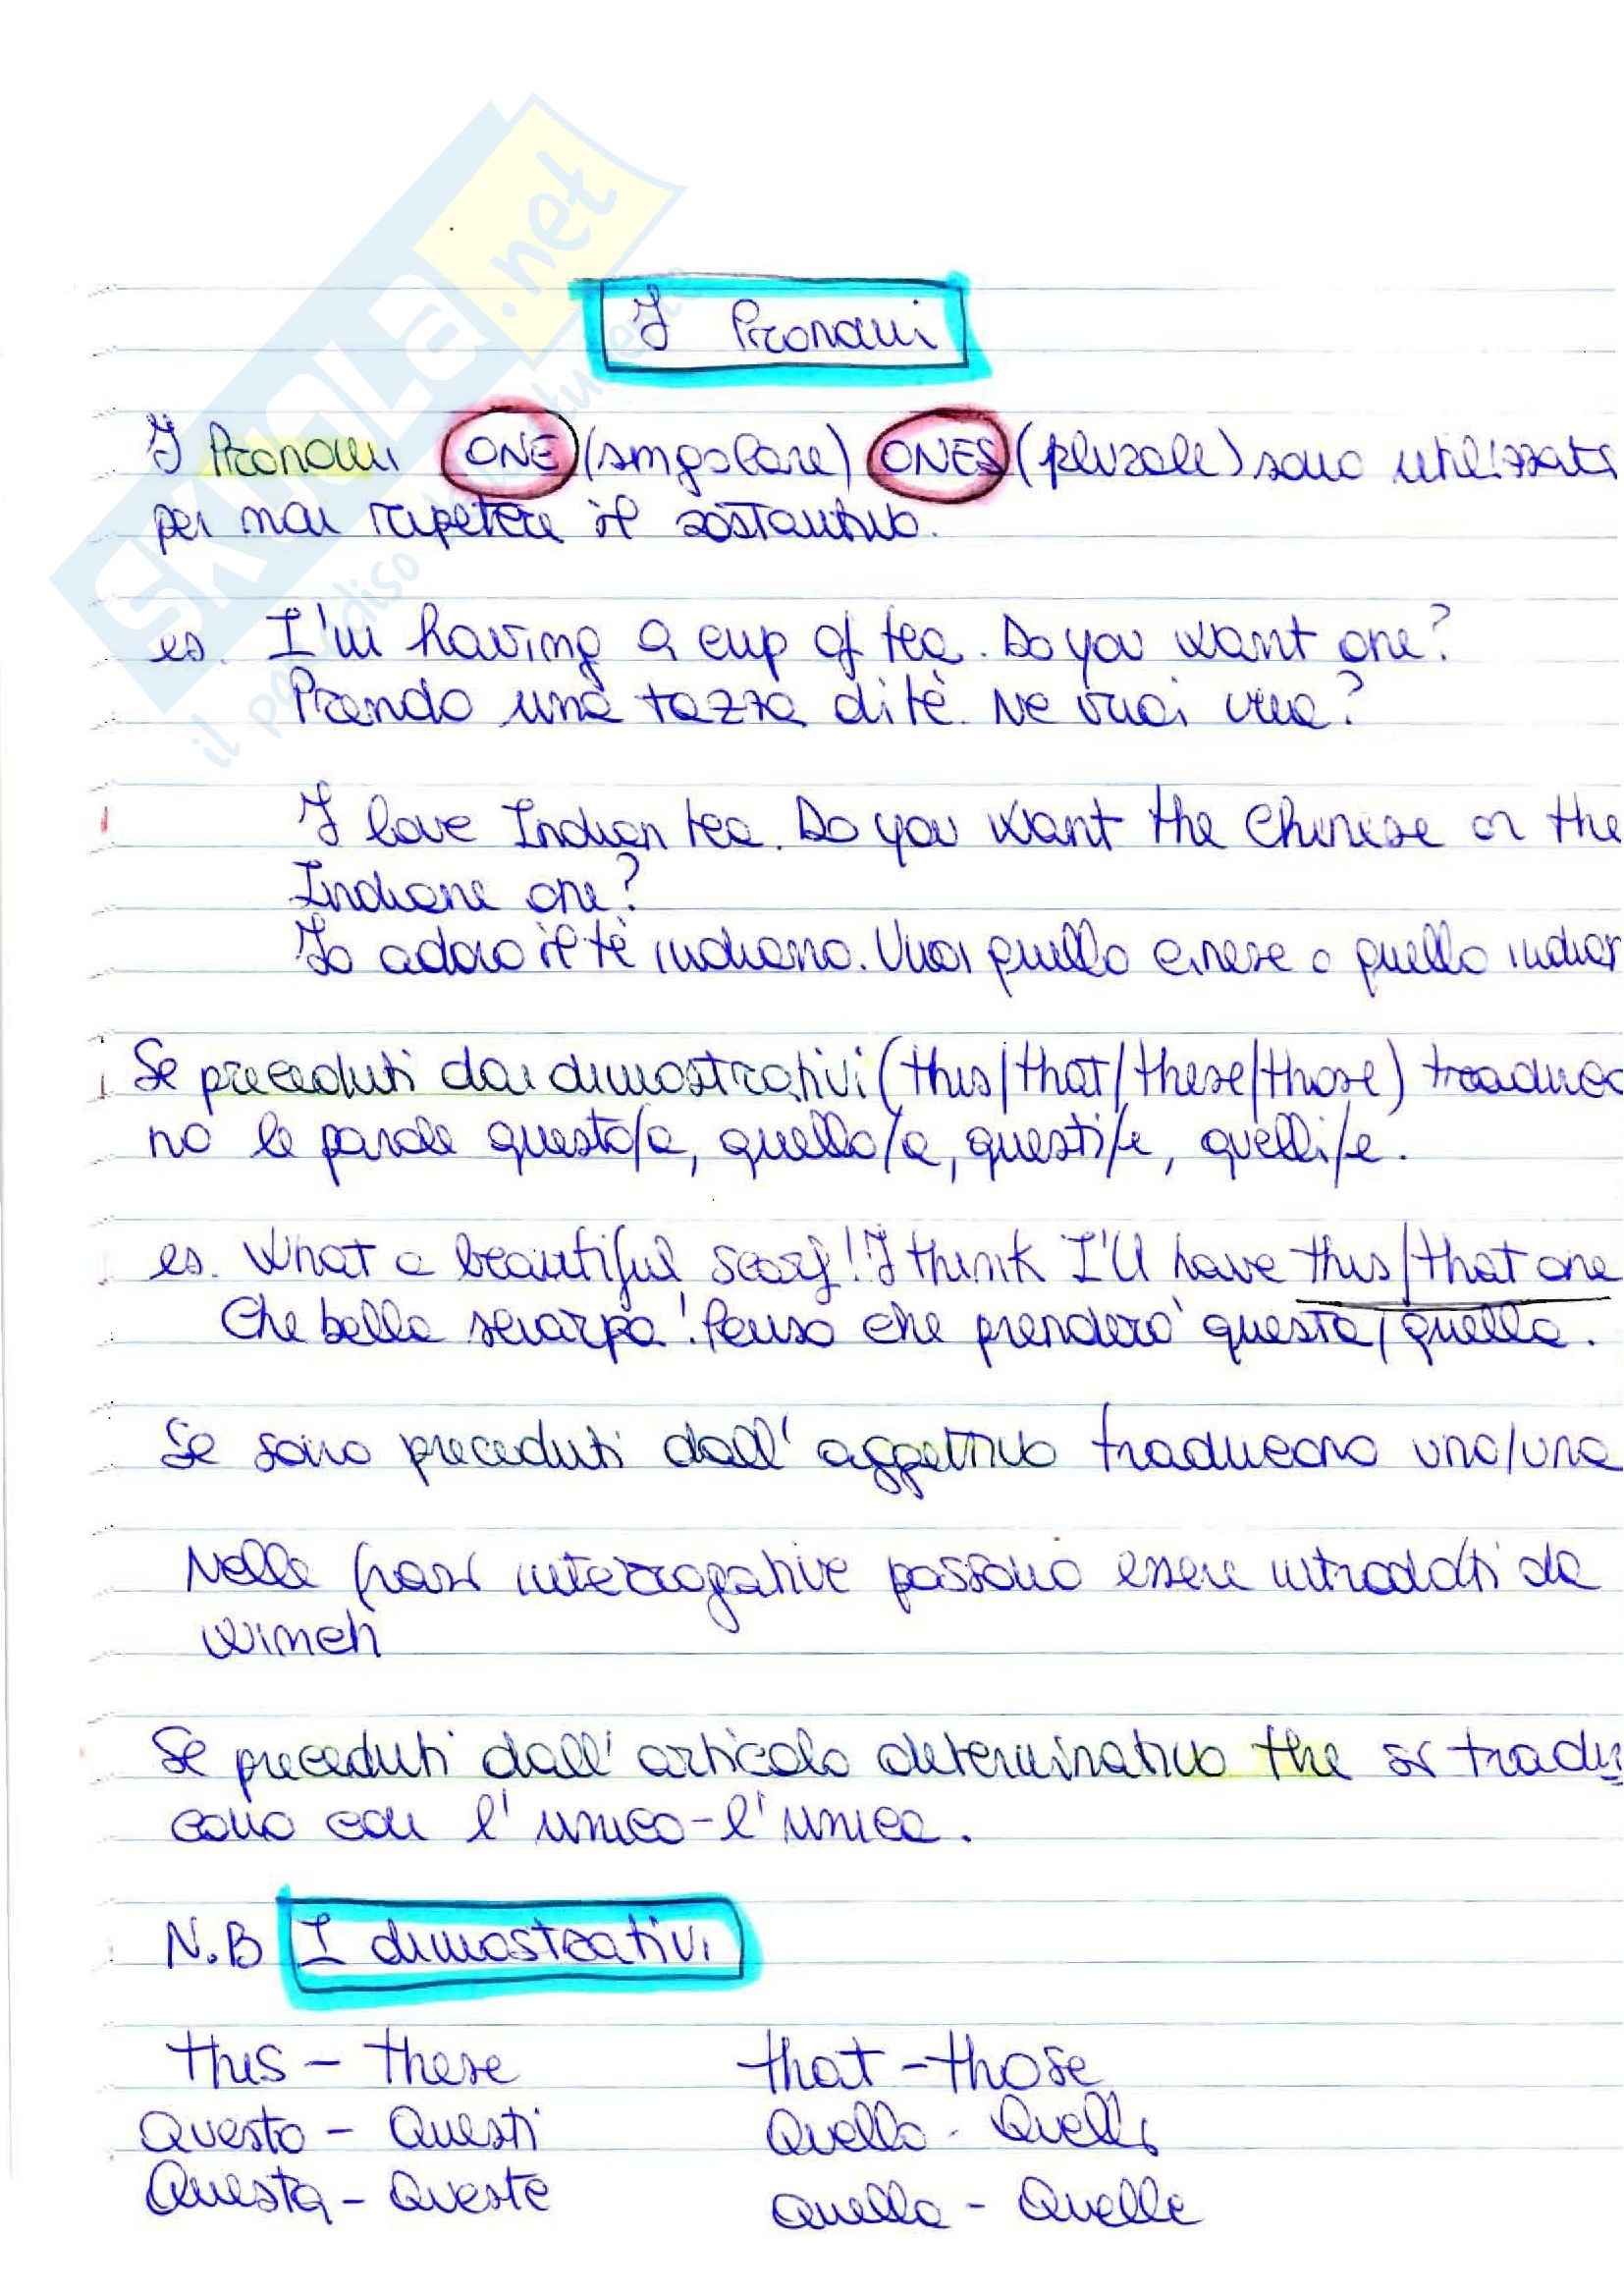 SKUOLA.net
il paradiso dello studente
I Pronomi
I Pronomi ONE (singolare) ONES (plurale) sono utilizzati
per non ripetere il sostantivo.
es. I'm having a cup of tea. Do you want one?
Prendo una tazza di tè. Ne vuoi una?
I love Indian tea. Do you want the Chinese or the
Indiane one?
Io adoro il tè indiano. Vuoi quello cinese o quello indian
Se preceduti dai dimostrativi (this/that/these/those) traduco
no le parole questo/a, quello/a, questi/e, quelli/e.
es. What a beautiful scarf! I think I'll have this/that one
Che bella sciarpa! Penso che prenderò questa/quella.
Se sono preceduti dall'aggettivo traducono uno/una
Nelle frasi interrogative possono essere introdotti da
which
Se preceduti dall'articolo determinativo the si tradu
cono con l'unico-l'unica.
N.B I dimostrativi
this - these that - those
Questo - Questi Quello - Quelli
Questa - Queste Quella - Quelle